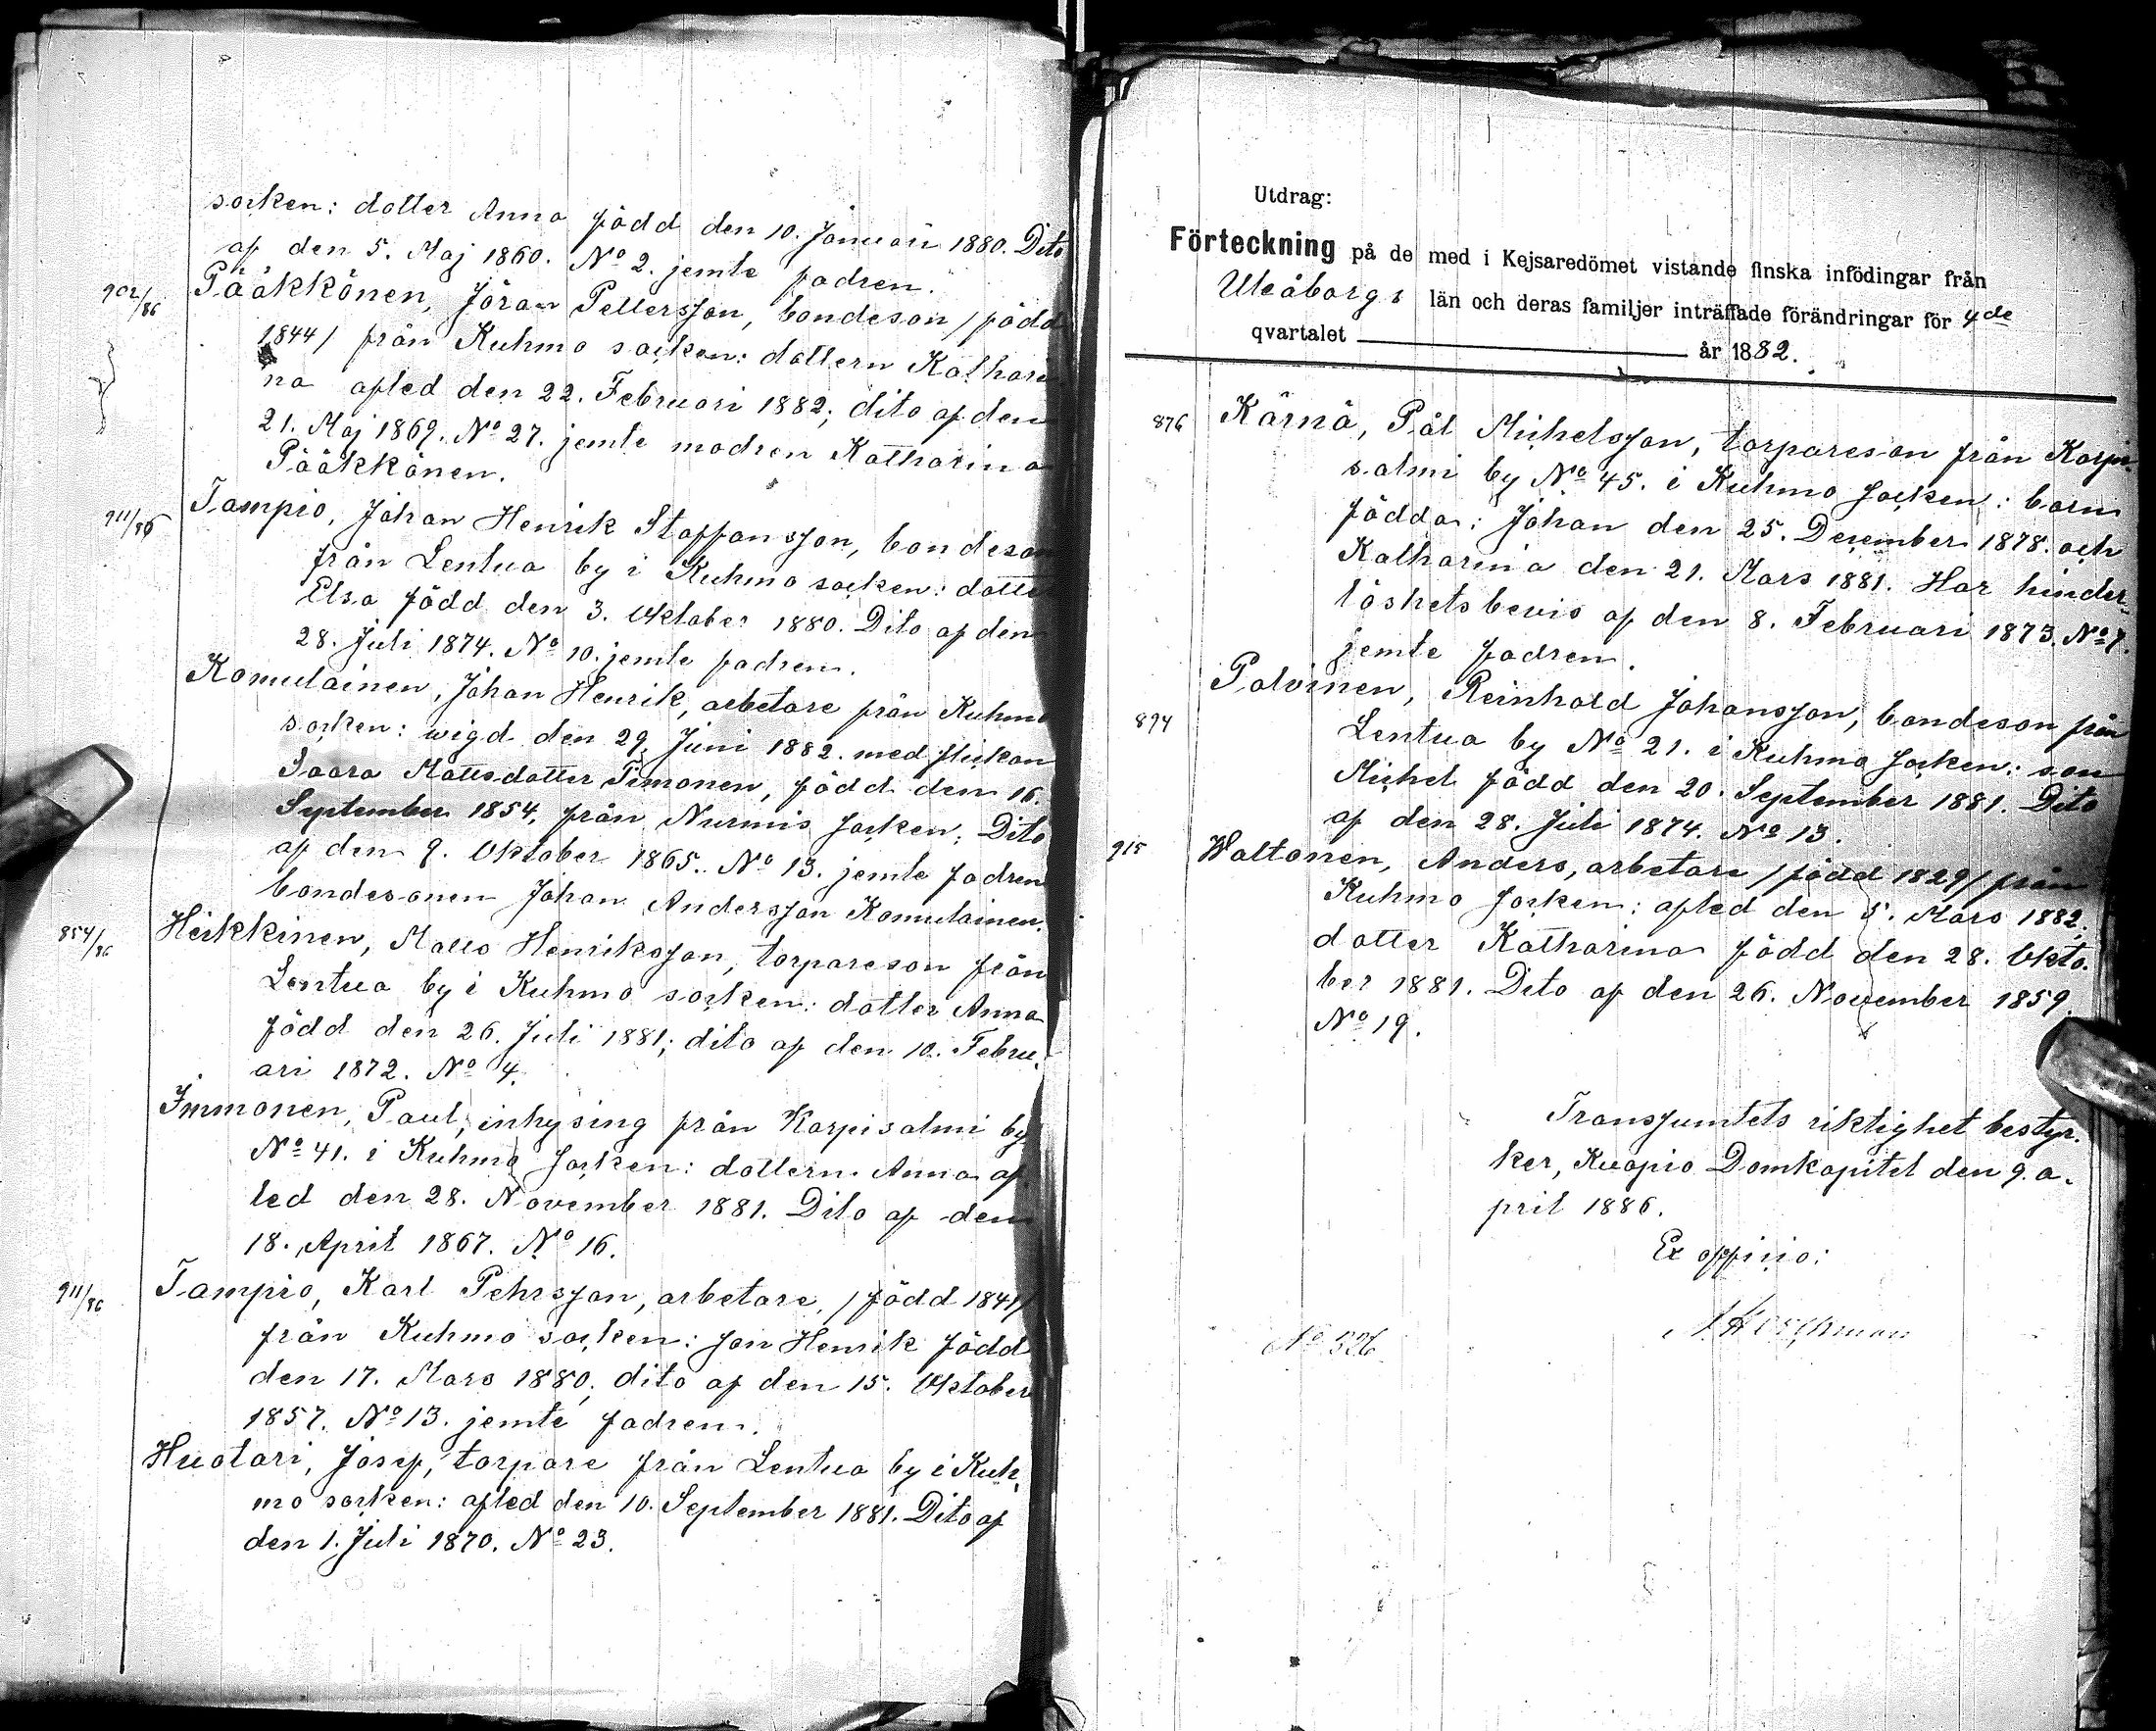 socken: dotter Anna född den 10. Januari 1880. Dito
af den 5. Maj 1860. No 2. jemte fadren.
902/86 Pääkkönen, Jöran Pettersson, bondeson / född
1844 / från Kuhmo socken: dottern Kathari
na afled den 22. Februari 1882; dito af den
21. Maj 1869. No 27. jemte modren Katharina
Pääkkönen.
911/86 Tampio, Johan Henrik Staffansson, bondeson
från Lentua by i Kuhmo socken: dotte
Elsa född den 3. Oktober 1880. Dito af den
28. Juli 1874. No 10. jemte fadren.
Komulainen, Johan Henrik, arbetare från Kuhmo
socken: wigd den 29. Juni 1882. med flickan
Saara Mattsdotter Timonen, född den 16.
September 1854, från Nurmis socken; Dito
af den 9. Oktober 1865. No 13. jemte fadren
bondesonen Johan Andersson Komulainen.
854/86 Heikkinen, Matts Henriksson, torpareson från
Lentua by i Kuhmo socken: dotter Anna
född den 26. Juli 1881; dito af den 10. Febru,
ari 1872. No 4.
Immonen, Paul, inhysing från Korpisalmi by
No 41. i Kuhmo socken: dottern Anna af
led den 28. November 1881. Dito af den
18. April 1867. No 16.
911/86 Tampio, Karl Pehrsson, arbetare, / född 1841 /
från Kuhmo socken: son Henrik född
den 17. Mars 1880; dito af den 15. Oktober
1857. No 13. jemte fadren.
Huotari, Josep, torpare från Lentua by i Kuh,
mo socken: afled den 10. September 1881. Dito af
den 1. Juli 1870. No 23.
Utdrag:
Förteckning på de med i Kejsaredömet vistande finska infödingar från
Uleåborgs län och deras familjer inträffade förändringar för 4de
qvartalet år 1882.
876 Kärnä, Pål Michelsson, torpareson från Korpi
salmi by No 45. i Kuhmo socken: barn
födda: Johan den 25. December 1878. och
Katharina den 21. Mars 1881. Har hinder-
löshetsbevis af den 8. Februari 1873. No 7.
jemte fadren.
894 Polvinen, Reinhold Johansson, bondeson från
Lentua by No 21. i Kuhmo socken: son
Michel född den 20. September 1881. Dito
af den 28. Juli 1874. No 13.
915 Waltonen, Anders, arbetare / född 1829 / från
Kuhmo socken: afled den 5. Mars 1882;
dotter Katharina född den 28. Okto.
ber 1881. Dito af den 26. November 1859.
No 19.
Transsumtets riktighet bestyr.
ker, Kuopio Domkapitel den 9. a.
pril 1886.
Ex officio:
No 326